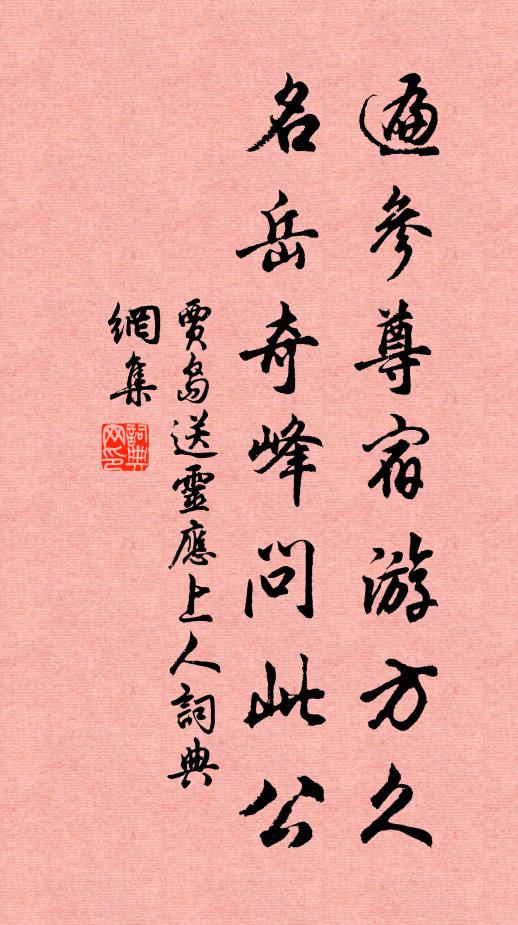 遍參尊宿游方久
名岳奇峰問此公
賈島送靈應上人詞典
網集
詞典網印